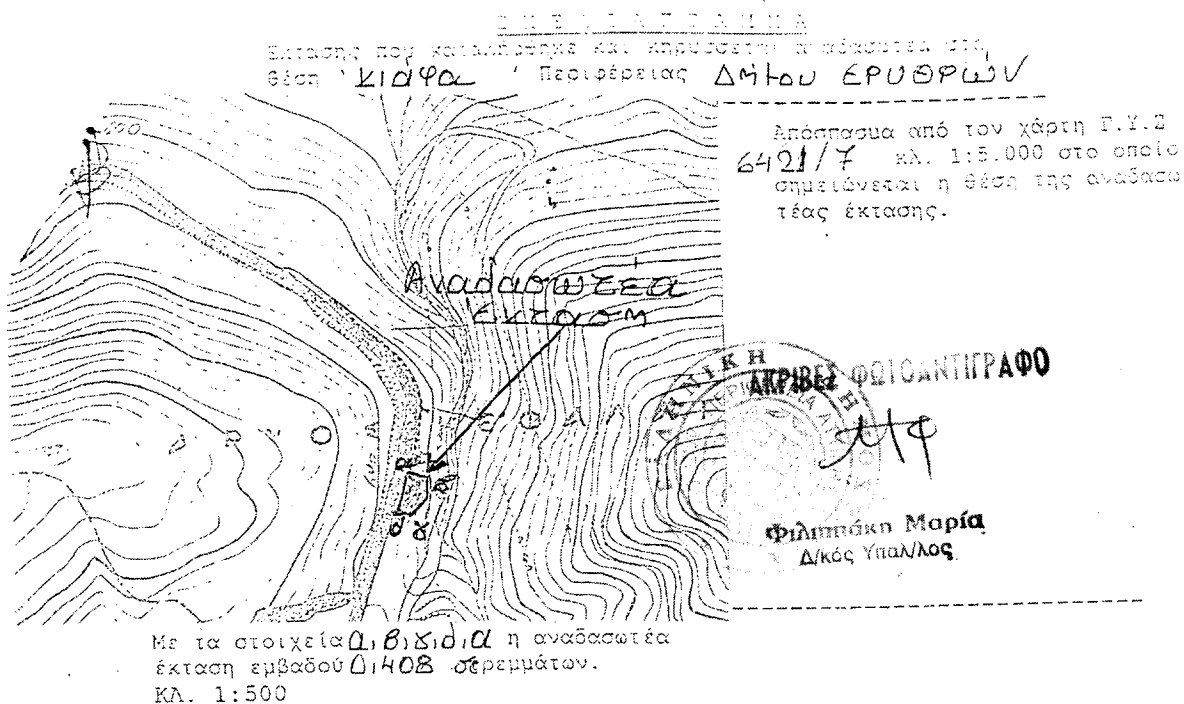 ΣΧΕΔΙΑΓΡΑΜΜΑ
Έκτασης που καταλήφθηκε και κηρύσσεται αναδασωτέα στη
θέση ' Κιάφα ' Περιφέρειας Δήμου ΕΡΥΘΡΩΝ
Απόσπασμα από τον χάρτη Γ.Υ.Σ
6421/7 κλ. 1:5.000 στο οποίο
σημειώνεται η θέση της αναδασω
τέας έκτασης.
Αναδασωτέα
έκταση
ΑΚΡΙΒΕΣ ΦΩΤΟΑΝΤΙΓΡΑΦΟ
Φιλιππάκη Μαρία
Δ/κός Υπαλ/λος
Με τα στοιχεία α,β,γ,δ,α η αναδασωτέα
έκταση εμβαδού 0,408 στρεμμάτων.
ΚΛ. 1:500